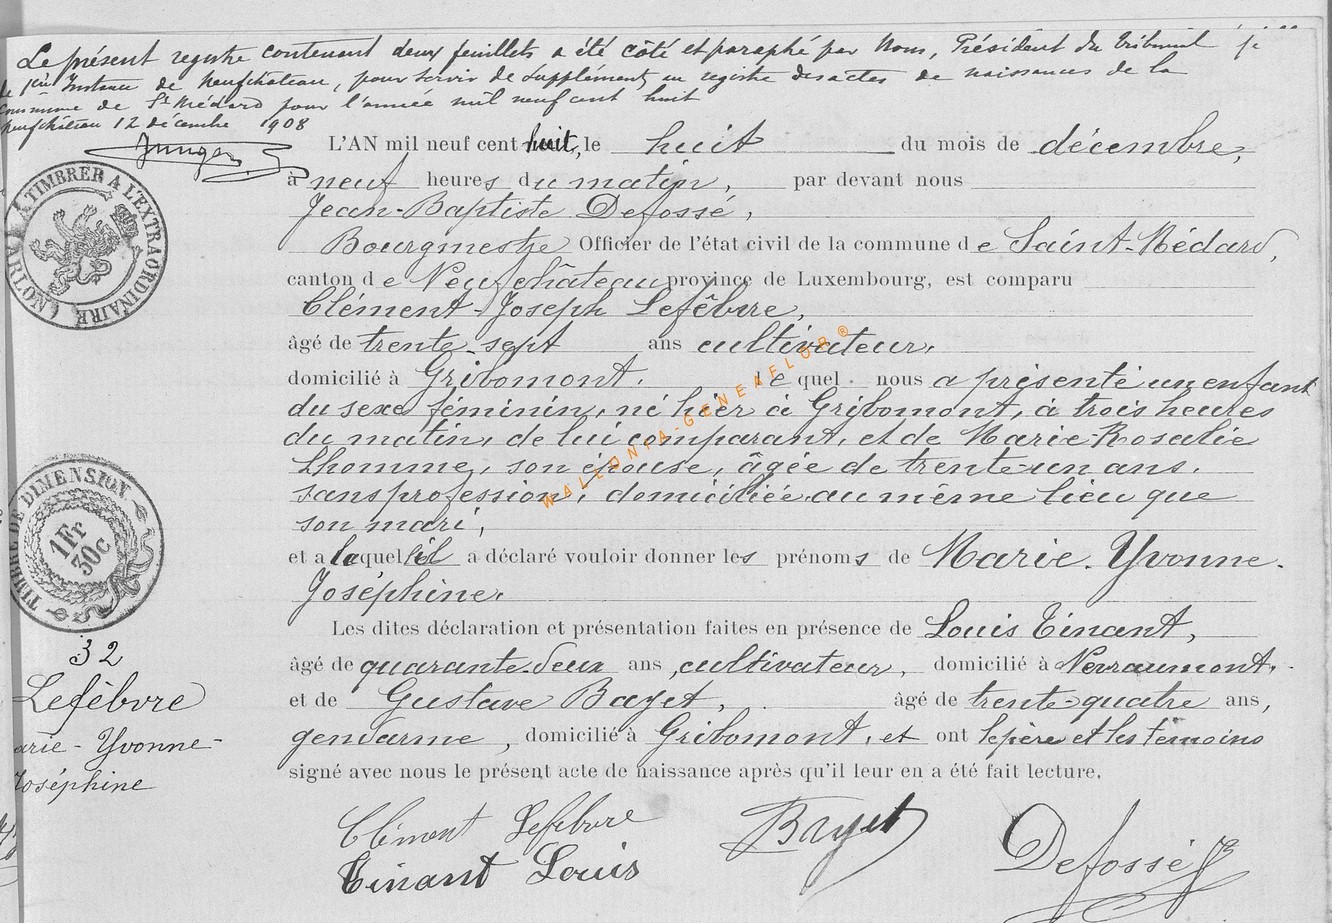 Le présent registre contenant deux feuillets a été côté et paraphé par Nous, Président du tribunal
de 1ère Instance de Neufchâteau, pour servir de supplément au registre des actes de naissances de la
Commune de St Médard pour l'année mil neuf cent huit
Neufchâteau 12 décembre 1908
L'AN mil neuf cent huit, le huit du mois de décembre,
à neuf heures du matin, par devant nous
Jean-Baptiste Defossé,
Bourgmestre Officier de l'état civil de la commune de Saint-Médard,
canton de Neufchâteau province de Luxembourg, est comparu
Clément-Joseph Lefèbvre,
âgé de trente-sept ans cultivateur,
domicilié à Gribomont, lequel nous a présenté un enfant
du sexe féminin, né hier à Gribomont, à trois heures
du matin, de lui comparant, et de Marie-Rosalie
Lhomme, son épouse, âgée de trente-un ans,
sans profession, domiciliée au même lieu que
son mari,
et a laquel il a déclaré vouloir donner les prénoms de Marie-Yvonne-
Joséphine.
Les dites déclaration et présentation faites en présence de Louis Tinant,
âgé de quarante-deux ans, cultivateur, domicilié à Nevraumont,
et de Gustave Bayet, âgé de trente-quatre ans,
gendarme, domicilié à Gribomont, et ont le père et les témoins
signé avec nous le présent acte de naissance après qu'il leur en a été fait lecture.
Clément Lefebvre
Bayet
Defossé
Tinant Louis
A TIMBRER A L'EXTRAORDINAIRE (ARLON)
TIMBRE DE DIMENSION
1Fr
30c
32
Lefèbvre
arie-Yvonne-
Joséphine
WALLONIA-GENENELOR®